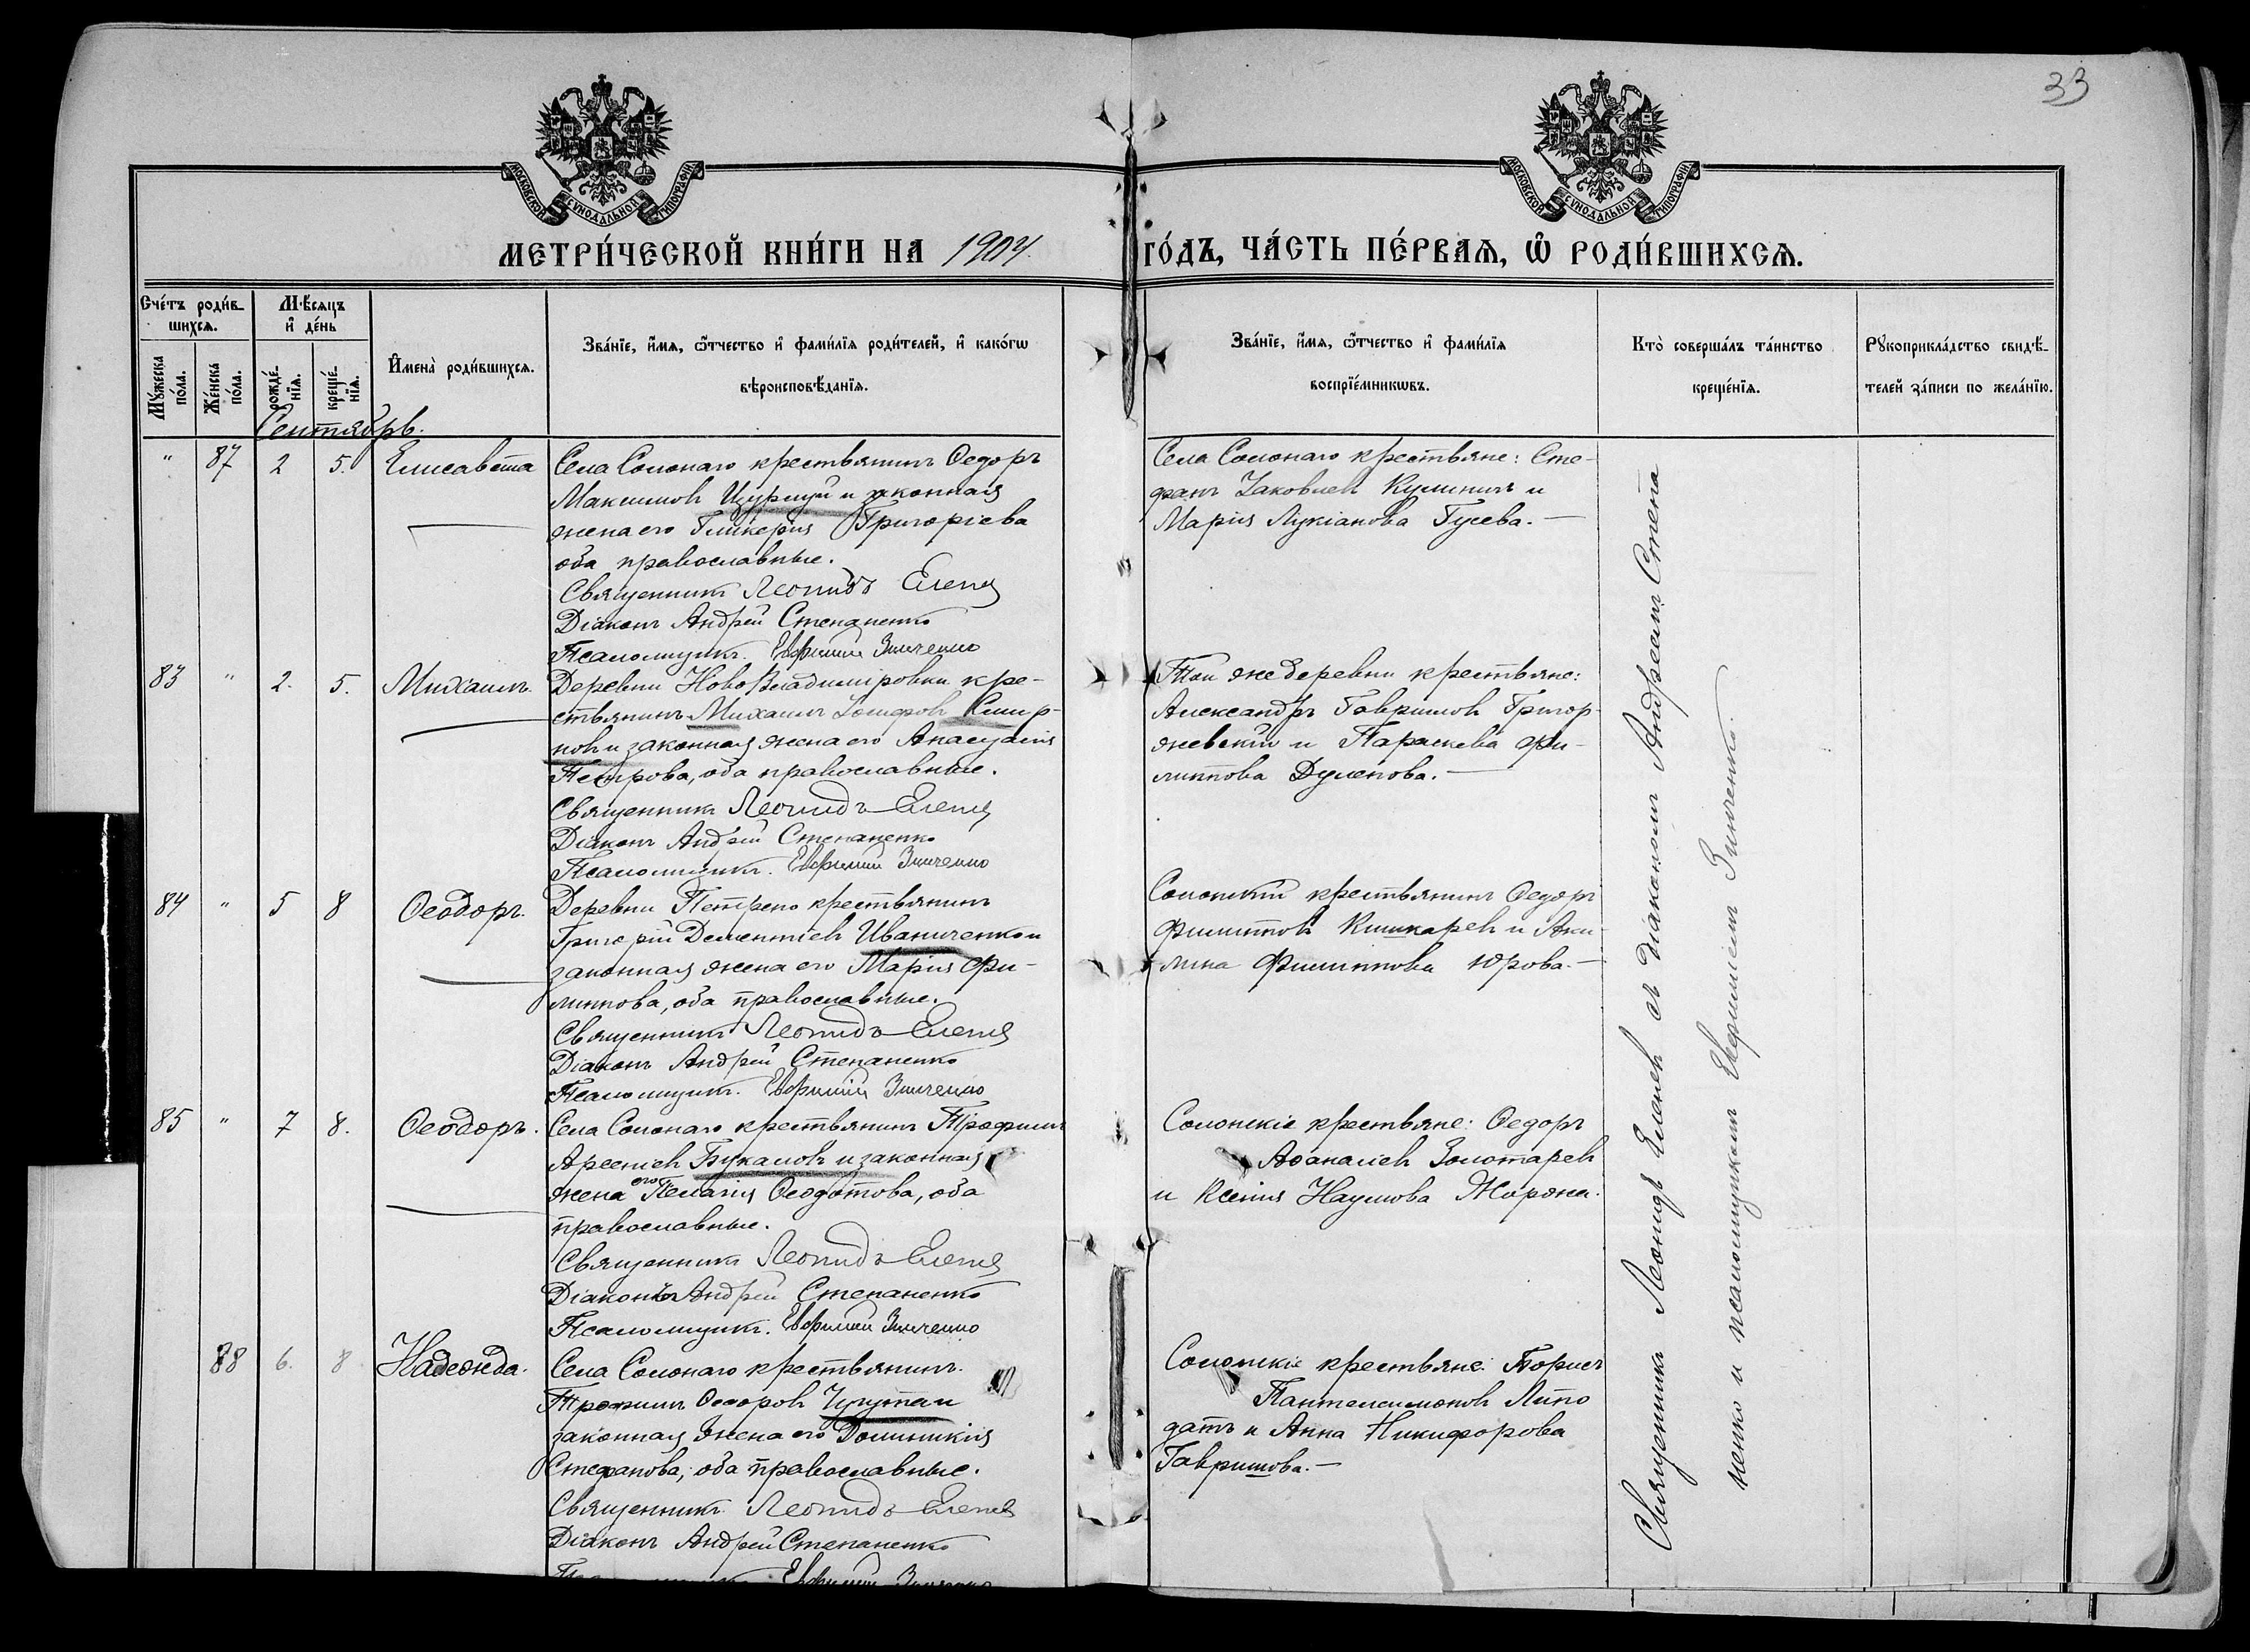 33
МОСКОВСКОЙ СѴНОДАЛЬНОЙ ТИПОГРАФІИ
МОСКОВСКОЙ СѴНОДАЛЬНОЙ ТИПОГРАФІИ
МЕТРИ́ЧЕСКОЙ КНИ́ГИ НА 1904. ГО́ДЪ, ЧА́СТЬ ПЕ́РВАѦ, Ѡ҆ РОДИ́ВШИХСѦ.
Сче́тъ роди́в-
шихсѧ.
Мꙋ́жеска по́ла.
Же́нска по́ла.
Мѣ́сѧцъ
и҆ де́нь
рожде́-
нїѧ.
креще́-
нїѧ.
И҆мена̀ роди́вшихсѧ.
Зва́нїе, и҆́мѧ, ѻ҆́тчество и҆ фами́лїѧ роди́телей, и҆ како́гѡ
вѣроисповѣ́данїѧ.
Зва́нїе, и҆́мѧ, ѻ҆́тчество и҆ фами́лїѧ
воспрїе́мникѡвъ.
Кто̀ соверша́лъ та́инство
креще́нїѧ.
Рꙋкоприкла́дство свидѣ́-
телей за́писи по жела́нїю.
Сентябрь.
" 87 2 5. Елисавета
Села Солонаго крестьянинъ Ѳедоръ
Максимовъ и законная
жена его Гликерія Григоріева
оба православные.
Священникъ Леонидъ Еленев
Діаконъ Андрей Степаненко
Псаломщикъ. Евфимій Зинченко
Села Солонаго крестьяне: Сте-
фанъ Іаковлевъ и
Марія Лукіанова Гусева.—
83 " 2. 5. Михаилъ.
Деревни НовоВладиміровки кре-
стьянинъ Михаилъ Іосифовъ Смир-
новъ и законная жена его Анастасія
Петрова, оба православные.
Священникъ Леонидъ Еленев
Діаконъ Андрей Степаненко
Псаломщикъ. Евфимій Зинченко
Той же деревни крестьяне:
Александръ Гавриловъ Григор-
жевскій и Параскева Фи-
липпова Дуленова.—
84 " 5 8 Ѳеодоръ.
Деревни Петрено крестьянинъ
Григорій Дементіевъ Иваниченко и
законная жена его Марія Фи-
липпова, оба православные.
Священникъ Леонидъ Еленев
Діаконъ Андрей Степаненко
Псаломщикъ. Евфимій Зинченко
Солонскій крестьянинъ Ѳедоръ
Филипповъ Кишкаревъ и Аки-
лина Филиппова Юрова.—
85 " 7 8. Ѳеодоръ.
Села Солонаго крестьянинъ Трофимъ
Арсеніевъ Букаловъ и законная
жена его Пелагія Ѳеодотова, оба
православные.
Священникъ Леонидъ Еленев
Діаконъ Андрей Степаненко
Псаломщикъ. Евфимій Зинченко
Солонскіе крестьяне: Ѳедоръ
Аѳанасіевъ Золотаревъ
и Ксенія Наумова
88 6. 8 Надежда.
Села Солонаго крестьянинъ
Трофимъ Ѳеодоровъ и
законная жена его Домникія
Стефанова, оба православные.
Священникъ Леонидъ Еленев
Діаконъ Андрей Степаненко
Евфимій Зинченко
Солонскіе крестьяне: Борисъ
Пантелеимоновъ Липо
датъ и Анна Никифорова
Гаврилова.—
Священникъ Леонидъ Еленевъ съ діакономъ Андреемъ Степа
ненко и псаломщикомъ Евфиміемъ Зинченко.